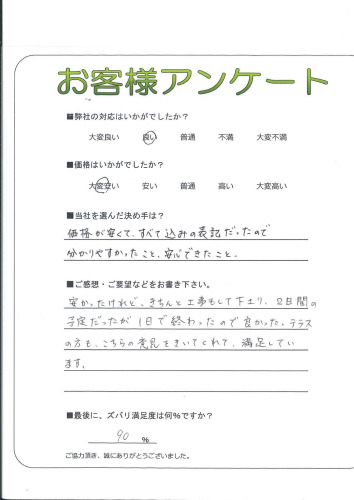 お客様アンケート
■弊社の対応はいかがでしたか？
大変良い 良い 普通 不満 大変不満
■価格はいかがでしたか？
大変安い 安い 普通 高い 大変高い
■当社を選んだ決め手は？
価格が安くて、すべて込みの表記だったので
分かりやすかったこと、安心できたこと。
■ご感想・ご要望などをお書き下さい。
安かったけれど、きちんと工事もして下さり、2日間の
予定だったが1日で終わったので良かった。テラス
の方も、こちらの意見をきいてくれて、満足してい
ます。
■最後に、ズバリ満足度は何%ですか？
90 %
ご協力頂き、誠にありがとうございました。